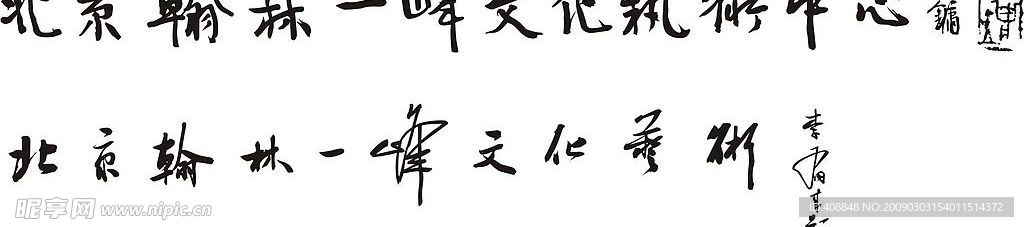 北京翰林一峰文化執術中心
北京翰林一峰文化藝術
昵享网 www.nipic.cn
ID:408848 NO:20090303154011514372